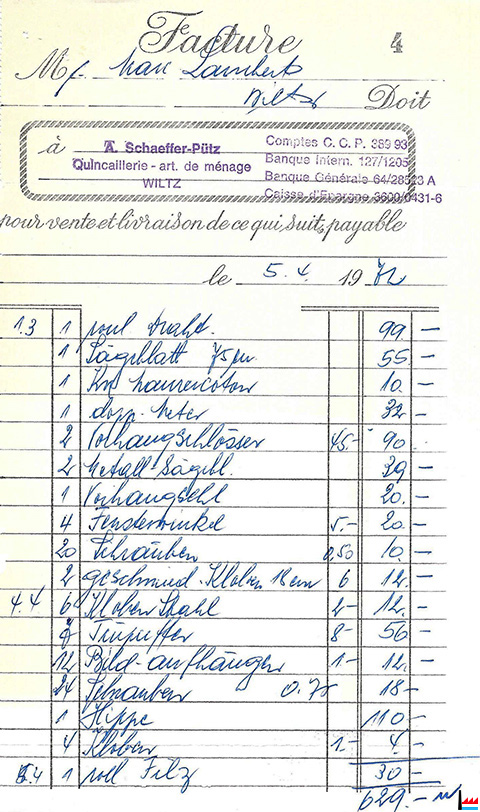 Facture 4
Mr. Marc Lambert
Wiltz Doit
à A. Schaeffer-Pütz
Quincaillerie - art. de ménage
WILTZ
Comptes C. C. P. 389 93
Banque Intern. 127/1205
Banque Générale 64/28523 A
Caisse d'Epargne 3600/0431-6
pour vente et livraison de ce qui suit, payable
le 5.4. 1972
1.3 1 roul Draht. 99 —
1 Sägeblatt 75 55 —
1 10 —
1 dopp. Meter 32 —
2 Vorhangschlösser 45.- 90
2 Metall-Sägebl. 39 —
1 20.—
4 Fensterwinkel 5.- 20.—
20 Schrauben 0,50 10.—
2 geschmied. Kloben 18 cm 6 12.—
4.4 6 Kloben Stahl 2- 12.—
7 Türpuffer 8- 56 —
12 Bild-aufhänger 1.- 12.—
24 Schrauben 0.75 18 —
1 Hippe 110 —
4 Kloben 1.- 4.—
5.4 1 roll Filz 30 —
629.—